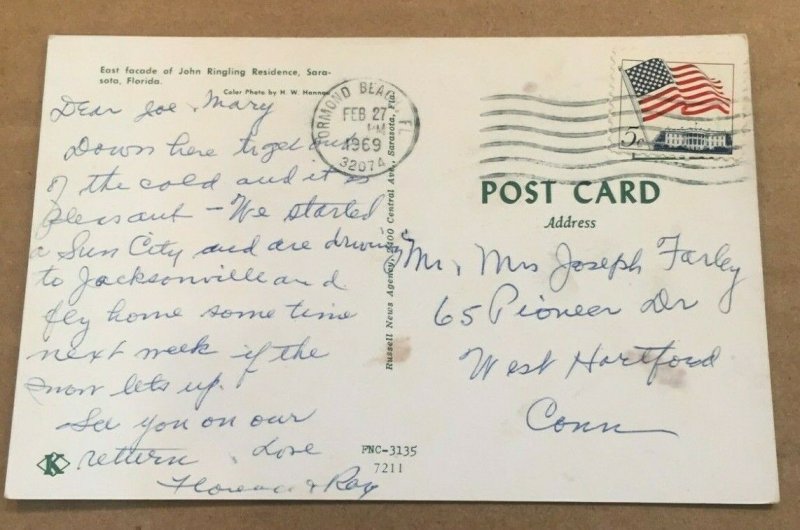 East facade of John Ringling Residence, Sara-
sota, Florida.
Color Photo by H. W. Hannau
Dear Joe, Mary
Down here to get out
of the cold and it is
pleasant - We started
a Sun City and are driving
to Jacksonville and
fly home some time
next week if the
snow lets up.
See you on our
return. Love
Florence & Ray
K
FNC-3135
7211
Russell News Agency, 2400 Central Ave., Sarasota, Fla.
ORMOND BEACH FL
FEB 27
PM
1969
32074
5c
POST CARD
Address
Mr, Mrs Joseph Farley
65 Pioneer Dr
West Hartford
Conn